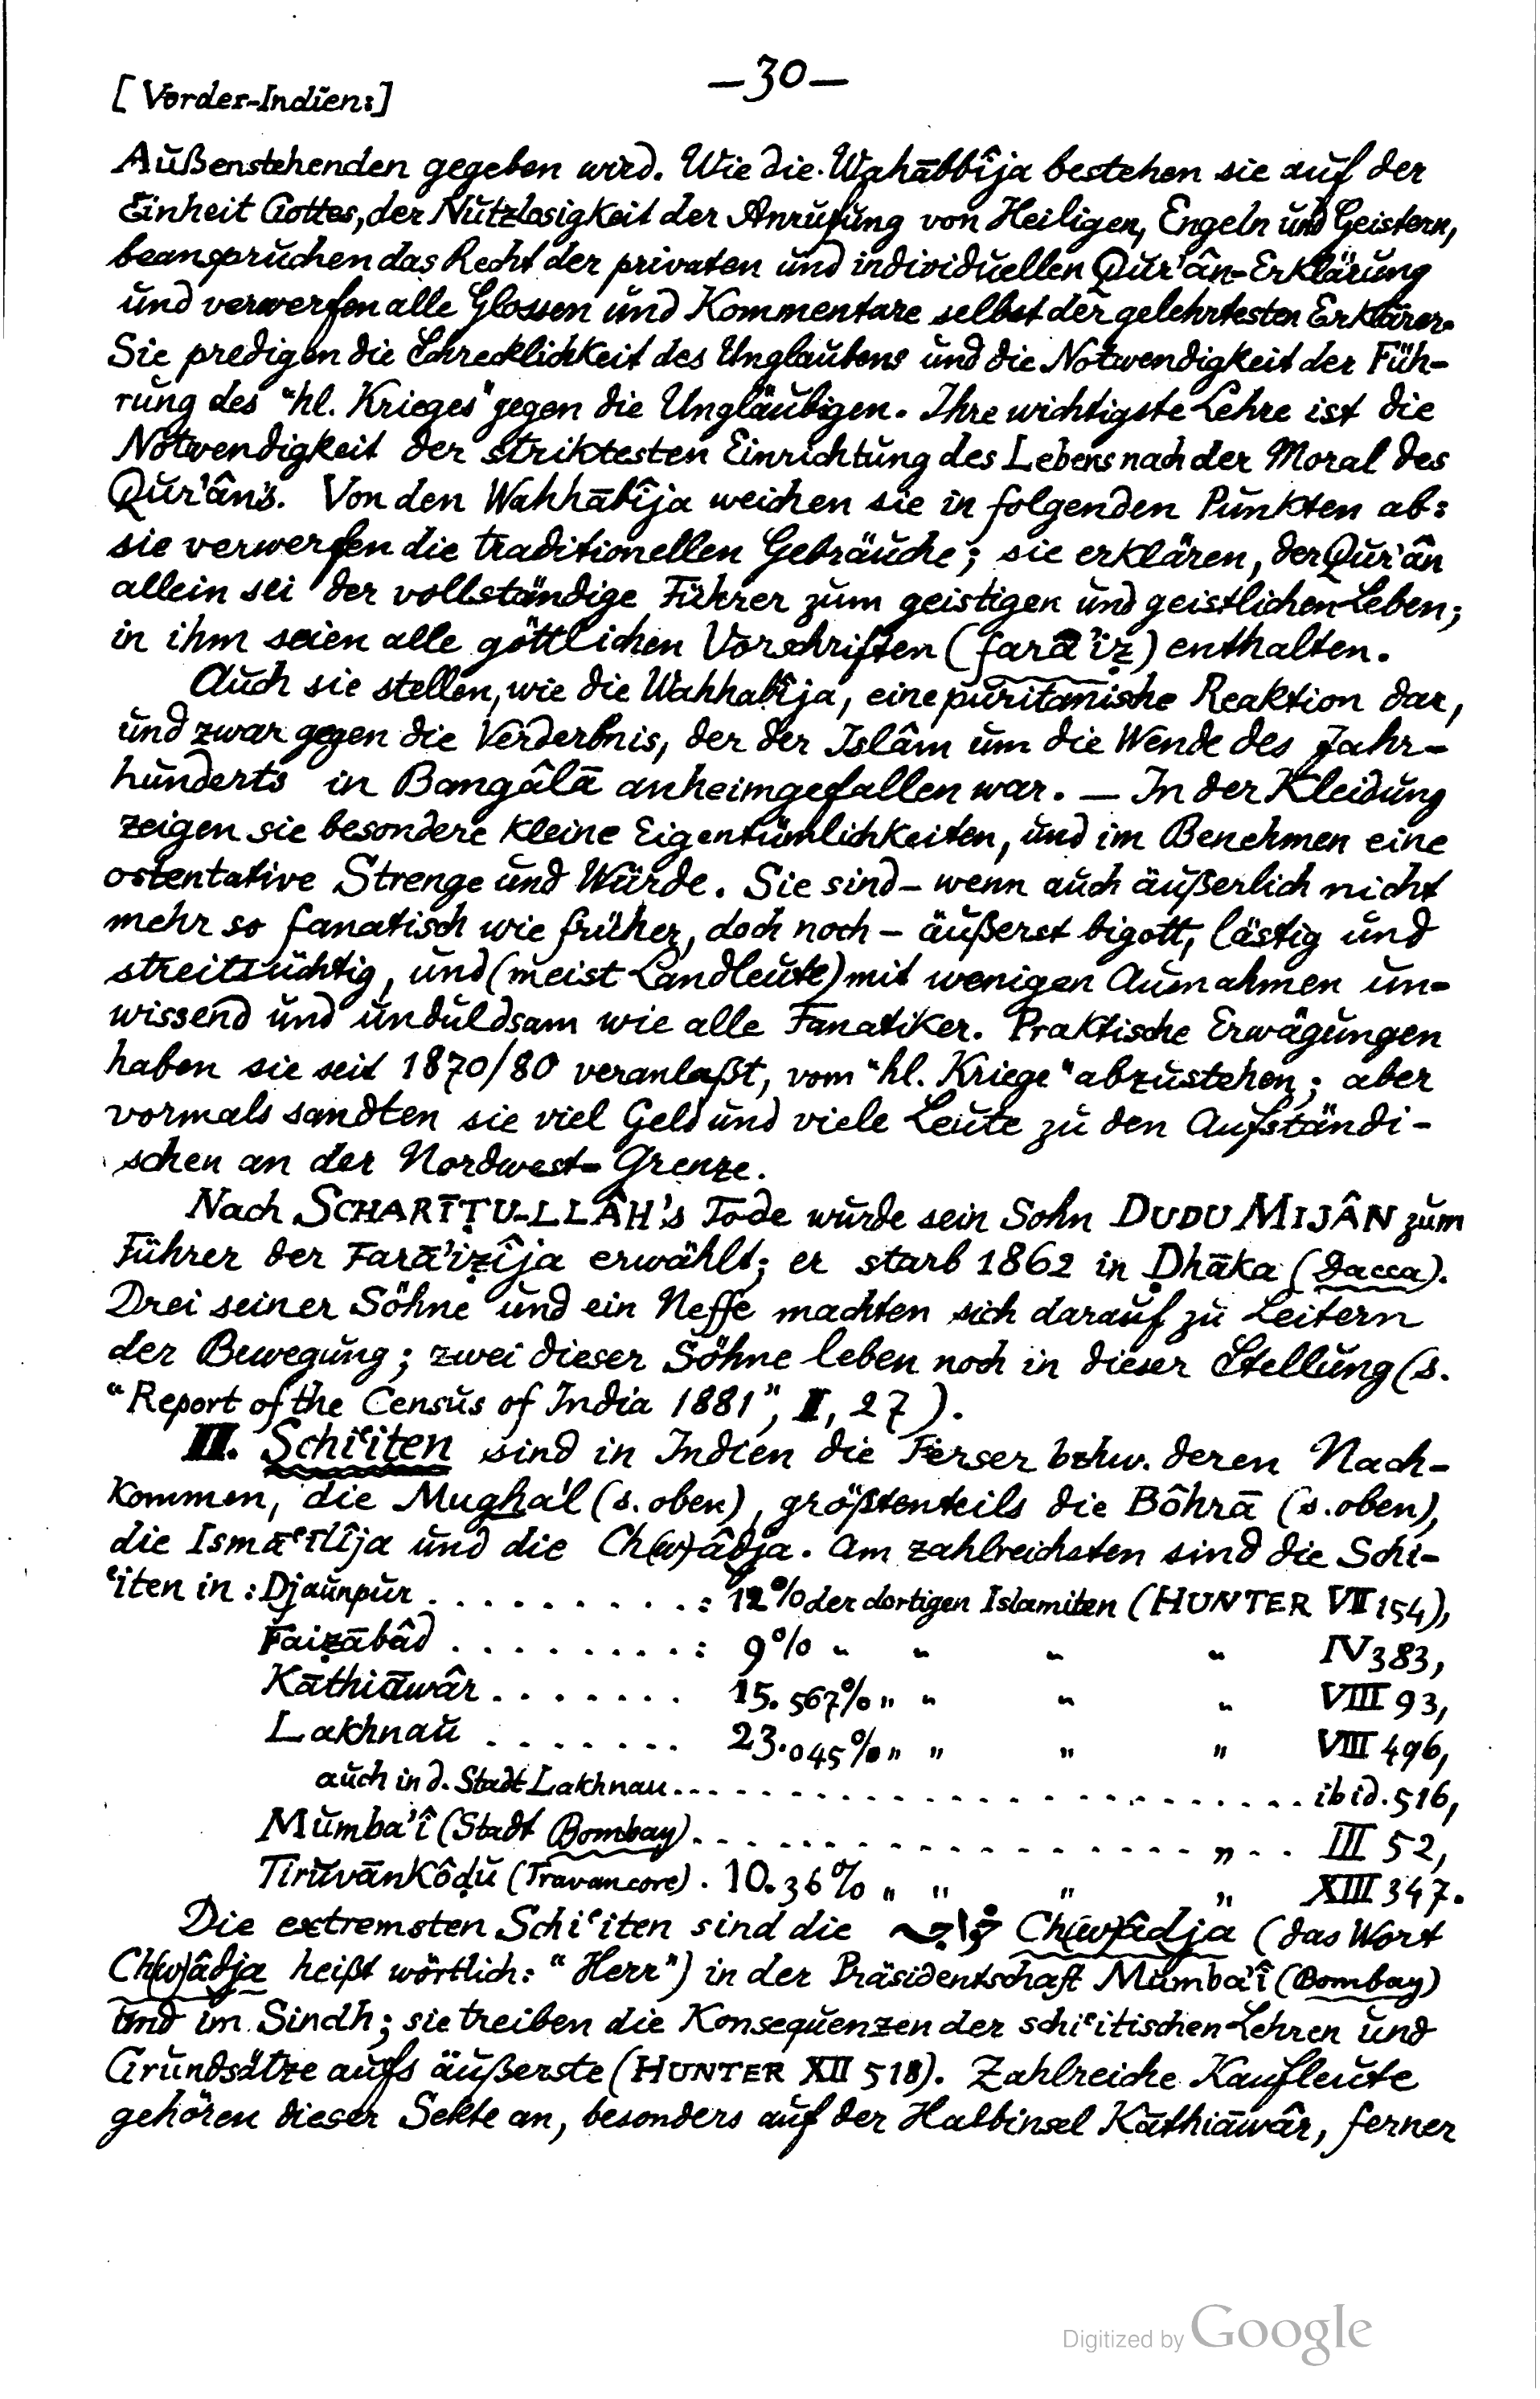 —30—
[Vorder-Indien:]
Außenstehenden gegeben wird. Wie die Wahābbîja bestehen sie auf der
Einheit Gottes, der Nutzlosigkeit der Anrufung von Heiligen, Engeln und Geistern,
beanspruchen das Recht der privaten und individuellen Qur'ân-Erklärung
und verwerfen alle Glossen und Kommentare selbst der gelehrtesten Erklärer.
Sie predigen die Schrecklichkeit des Unglaubens und die Notwendigkeit der Füh-
rung des "hl. Krieges" gegen die Ungläubigen. Ihre wichtigste Lehre ist die
Notwendigkeit der striktesten Einrichtung des Lebens nach der Moral des
Qur'ân's. Von den Wahhābîja weichen sie in folgenden Punkten ab:
sie verwerfen die traditionellen Gebräuche; sie erklären, der Qur'ân
allein sei der vollständige Führer zum geistigen und geistlichen Leben;
in ihm seien alle göttlichen Vorschriften (farā'iẓ) enthalten.
Auch sie stellen, wie die Wahhabîja, eine puritanische Reaktion dar,
und zwar gegen die Verderbnis, der der Islâm um die Wende des Jahr-
hunderts in Bangâlā anheimgefallen war. — In der Kleidung
zeigen sie besondere kleine Eigentümlichkeiten, und im Benehmen eine
ostentative Strenge und Würde. Sie sind – wenn auch äußerlich nicht
mehr so fanatisch wie früher, doch noch – äußerst bigott, lästig und
streitsüchtig, und (meist Landleute) mit wenigen Ausnahmen un-
wissend und unduldsam wie alle Fanatiker. Praktische Erwägungen
haben sie seit 1870/80 veranlaßt, vom "hl. Kriege" abzustehen; aber
vormals sandten sie viel Geld und viele Leute zu den Aufständi-
schen an der Nordwest-Grenze.
Nach SCHARĪṬU-LLÂH's Tode wurde sein Sohn DUDU MIJÂN zum
Führer der Farā'iẓîja erwählt; er starb 1862 in Ḍhāka (Dacca).
Drei seiner Söhne und ein Neffe machten sich darauf zu Leitern
der Bewegung; zwei dieser Söhne leben noch in dieser Stellung (s.
"Report of the Census of India 1881", II, 27).
II. Schiʿiten sind in Indien die Perser bzhw. deren Nach-
kommen, die Mughal (s. oben), größtenteils die Bôhrā (s. oben),
die Ismāʿīlîja und die Ch(w)âdja. Am zahlreichsten sind die Schi-
ʿiten in: Djaunpur . . . . . . . . . . : 12% der dortigen Islamiten (HUNTER VII 154),
Faiẓābâd . . . . . . . . . : 9% " " " " IV 383,
Kāthiāwâr . . . . . . . 15.567% " " " " VIII 93,
Lakhnau . . . . . . . 23.045% " " " " VIII 496,
auch in d. Stadt Lakhnau . . . . . . . . . . . . . . . . . . . . . . . . ibid. 516,
Mumba'î (Stadt Bombay) . . . . . . . . . . . . . . . . . . . " . . III 52,
Tiruvānkôḍu (Travancore) . 10.36% " " " " XIII 347.
Die extremsten Schiʿiten sind die خواجه Ch(w)âdja (das Wort
Ch(w)âdja heißt wörtlich: "Herr") in der Präsidentschaft Mumba'î (Bombay)
und im Sindh; sie treiben die Konsequenzen der schiʿitischen Lehren und
Grundsätze aufs äußerste (HUNTER XII 518). Zahlreiche Kaufleute
gehören dieser Sekte an, besonders auf der Halbinsel Kāthiāwâr, ferner
Digitized by Google